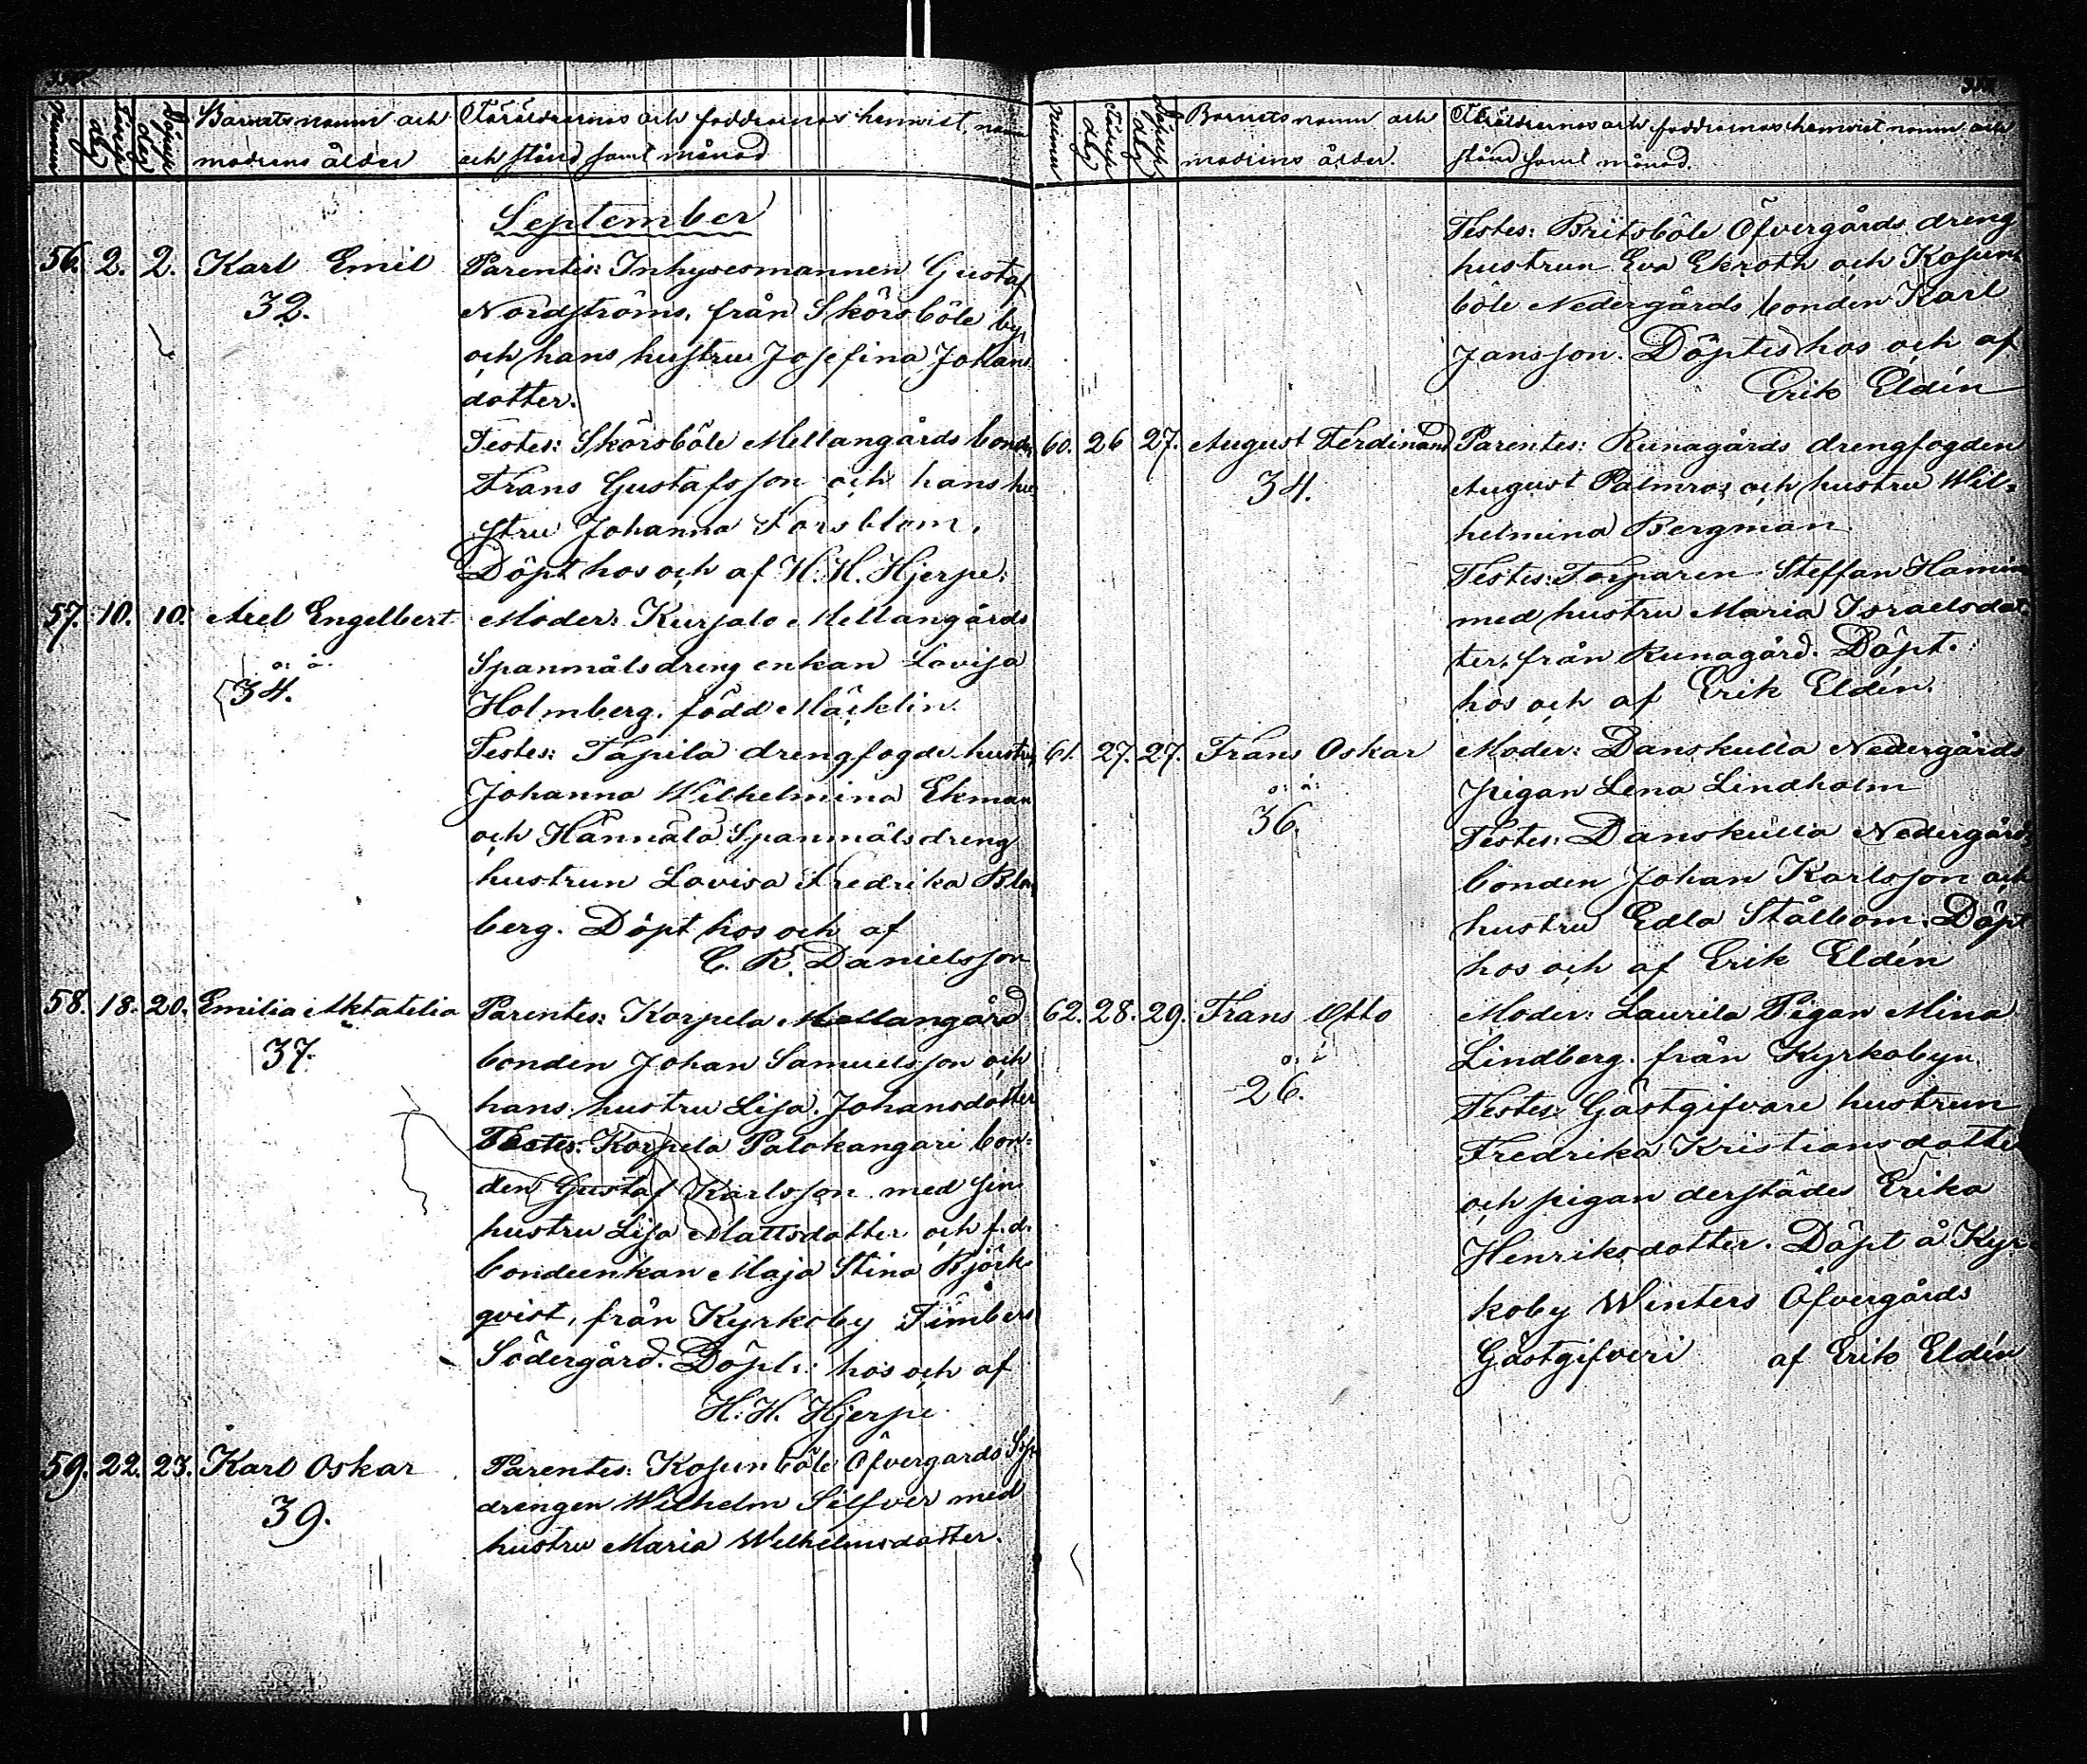 Nummer
Födelse dag
Döpelse dag
Barnets namn och
modrens ålder
Föräldrarnas och faddrarnas hemvist, namn
och stånd samt månad
September
56. 2. 2. Karl Emil
32.
Parentes: Inhysesmannen Gustaf
Nordströms, från Skörsböle by,
och hans hustru Josefina Johans
dotter.
Testes: Skörsböle Mellangårds bonde
Frans Gustafsson och hans hu
stru Johanna Forsblom.
Döpt hos och af H. H. Hjerpe.
57. 10. 10. Axel Engelbert
o: ä:
34.
Moder: Kurjalo Mellangårds
Spanmålsdreng enkan Lovisa
Holmberg, född Mäcklin.
Testes: Tapila drengfogde hustru
Johanna Wilhelmina Ekman
och Hännälä Spanmålsdreng
hustrun Lovisa Fredrika Blo
berg. Döpt hos och af
C. R. Danielsson
58. 18. 20. Emilia
37.
Parentes: Korpela Mellangård
bonden Johan Samuelsson och
hans hustru Lisa Johansdotter
Testes: Korpela Palokangari bon=
den Gustaf Karlsson med sin
hustru Lisa Mattsdotter och f. d.
bondeenkan Maja Stina Björk=
qvist, från Kyrkoby Timbers
Södergård. Döpt: hos och af
H. H. Hjerpe
59. 22. 23. Karl Oskar
39.
Parentes: Kosunböle Öfvergårds Sp
drengen Wilhelm Silfver med
hustru Maria Wilhelmsdotter.
Nummer
Födelse dag
Döpelse dag
Barnets namn och
modrens ålder.
Föräldrarnas och faddrarnas hemvist namn och
stånd samt månad.
Testes: Britsböle Öfvergårds dreng
hustrun Eva Ekroth och Kosun
böle Nedergårds bonden Karl
Jansson. Döptes hos och af
Erik Eldén
60. 26 27. August Ferdinand
34.
Parentes: Runagårds drengfogden
August Palmros och hustru Wil=
helmina Bergman
Testes: Torparen Steffan Hamin
med hustru Maria Israelsdot
ter, från Runagård. Döpt.
hos och af Erik Eldén.
61. 27. 27. Frans Oskar
o: ä:
36.
Moder: Danskulla Nedergårds
pigan Lena Lindholm
Testes: Danskulla Nedergårds
bonden Johan Karlsson och
hustru Edla Stålbom. Döpt
hos och af Erik Eldén
62. 28. 29. Frans Otto
o. ä
26.
Moder: Laurila Pigan Mina
Lindberg från Kyrkobyn.
Testes: Gästgifvare hustrun
Fredrika Kristiansdotte
och pigan derstädes Erika
Henriksdotter. Döpt å Kyr=
koby Winters Öfvergårds
Gästgifveri af Erik Eldén